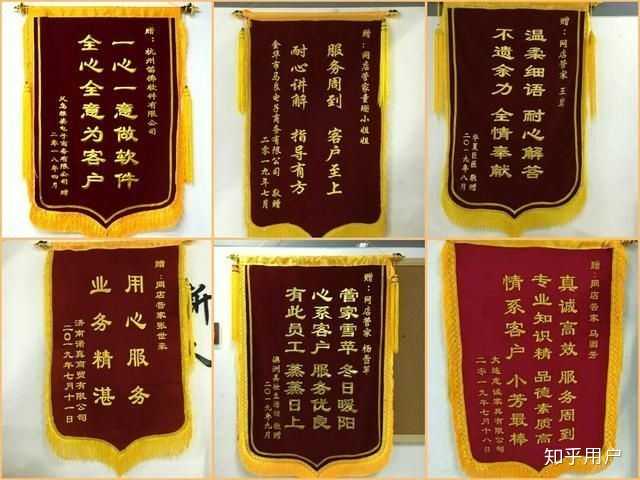 赠：杭州笛佛软件有限公司
一心一意做软件
全心全意为客户
义乌雅素电子商务有限公司 赠
二零一八年四月
赠：网店管家童珊小姐姐
服务周到 客户至上
耐心讲解 指导有方
金华市马良电子商务有限公司 敬赠
二零一九年七月
赠：网店管家 王岩
温柔细语 耐心解答
不遗余力 全情奉献
华夏巨匠 敬赠
二〇一九年八月
赠：网店管家张世豪
用心服务
业务精湛
济南诺真商贸有限公司
二〇一九年七月十一日
赠：网店管家 杨雪苹
管家雪苹 冬日暖阳
心系客户 服务优良
有此员工 蒸蒸日上
敬赠
二〇一九年九月
赠：网店管家 马园芳
真诚高效 服务周到
专业知识精 品德素质高
情系客户 小芳最棒
大连龙诚家具有限公司
二零一九年七月十八日
知乎用户